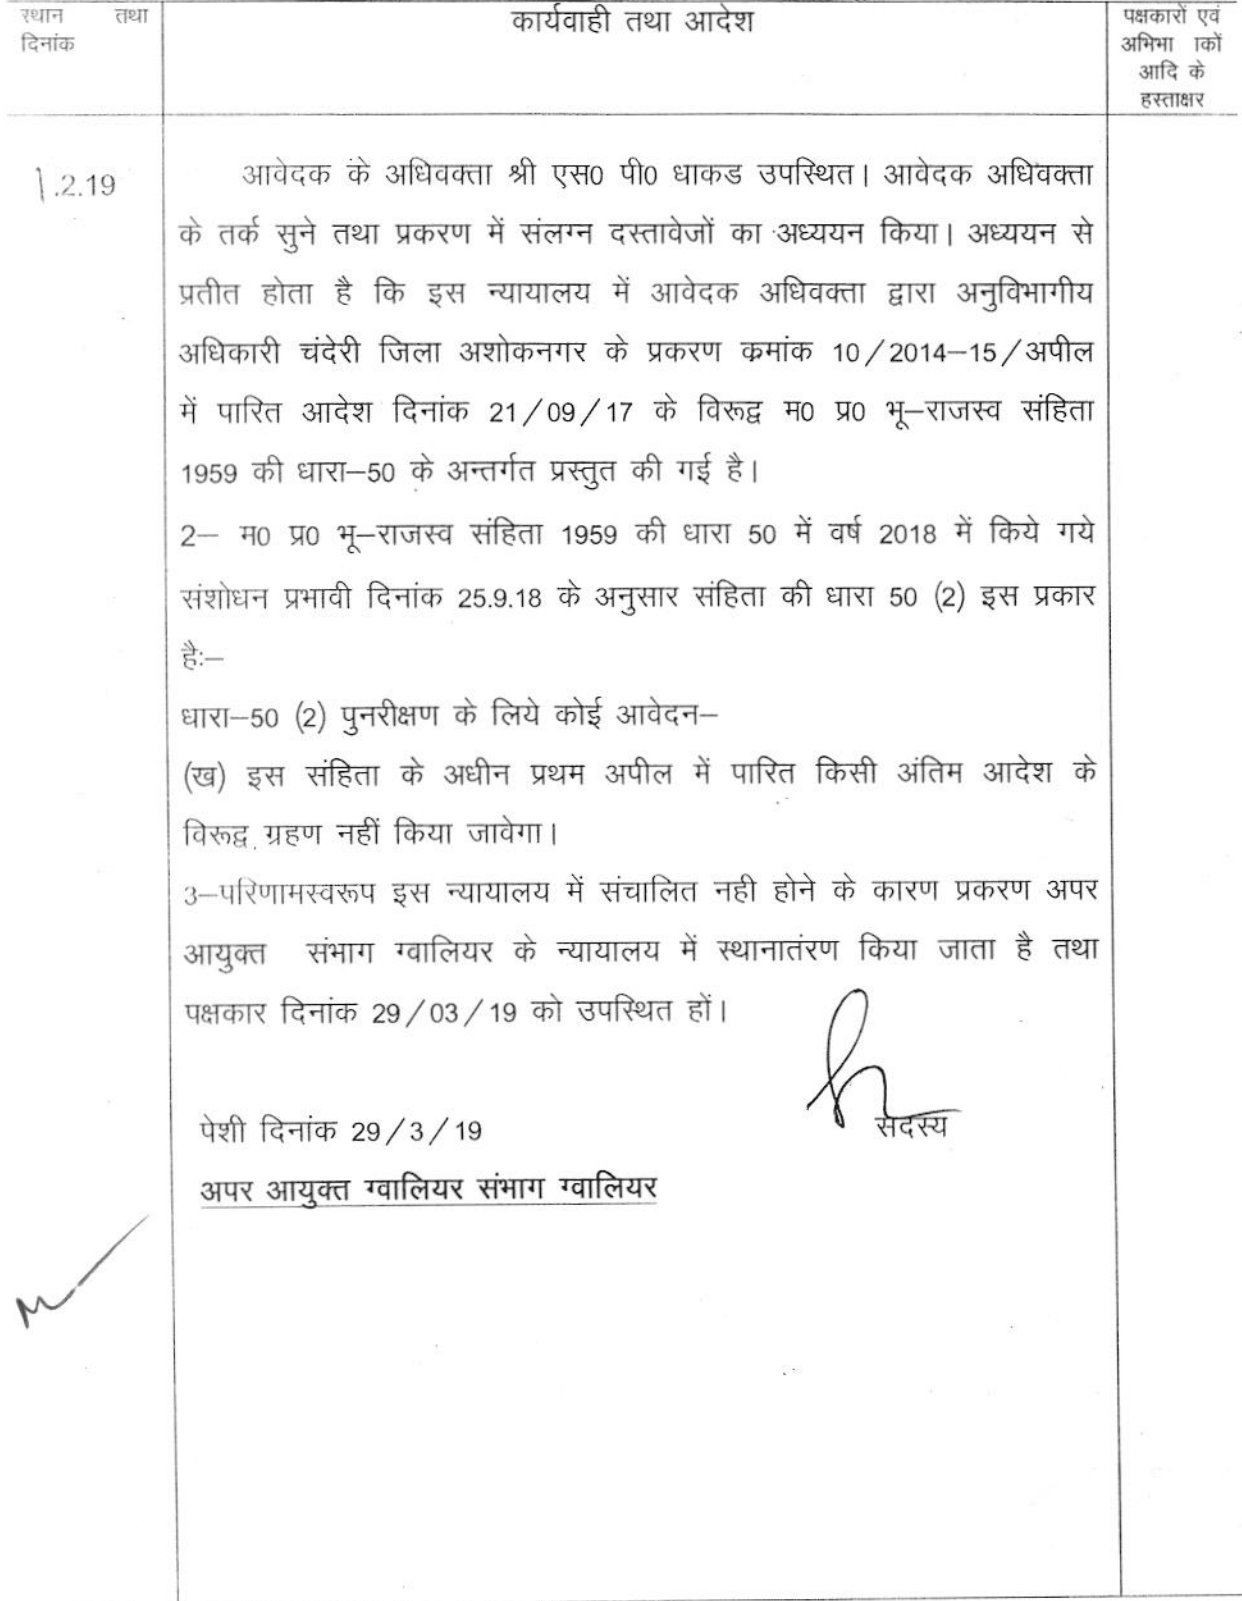 स्थान तथा
दिनांक
कार्यवाही तथा आदेश
पक्षकारों एवं
अभिभा कों
आदि के
हस्ताक्षर
1.2.19
आवेदक के अधिवक्ता श्री एस0 पी0 धाकड उपस्थित। आवेदक अधिवक्ता
के तर्क सुने तथा प्रकरण में संलग्न दस्तावेजों का अध्ययन किया। अध्ययन से
प्रतीत होता है कि इस न्यायालय में आवेदक अधिवक्ता द्वारा अनुविभागीय
अधिकारी चंदेरी जिला अशोकनगर के प्रकरण कमांक 10/2014–15/अपील
में पारित आदेश दिनांक 21/09/17 के विरूद्व म0 प्र0 भू–राजस्व संहिता
1959 की धारा–50 के अन्तर्गत प्रस्तुत की गई है।
2– म0 प्र0 भू–राजस्व संहिता 1959 की धारा 50 में वर्ष 2018 में किये गये
संशोधन प्रभावी दिनांक 25.9.18 के अनुसार संहिता की धारा 50 (2) इस प्रकार
है:–
धारा–50 (2) पुनरीक्षण के लिये कोई आवेदन–
(ख) इस संहिता के अधीन प्रथम अपील में पारित किसी अंतिम आदेश के
विरूद्व ग्रहण नहीं किया जावेगा।
3–परिणामस्वरूप इस न्यायालय में संचालित नही होने के कारण प्रकरण अपर
आयुक्त संभाग ग्वालियर के न्यायालय में स्थानातंरण किया जाता है तथा
पक्षकार दिनांक 29/03/19 को उपस्थित हों।
सदस्य
पेशी दिनांक 29/3/19
अपर आयुक्त ग्वालियर संभाग ग्वालियर